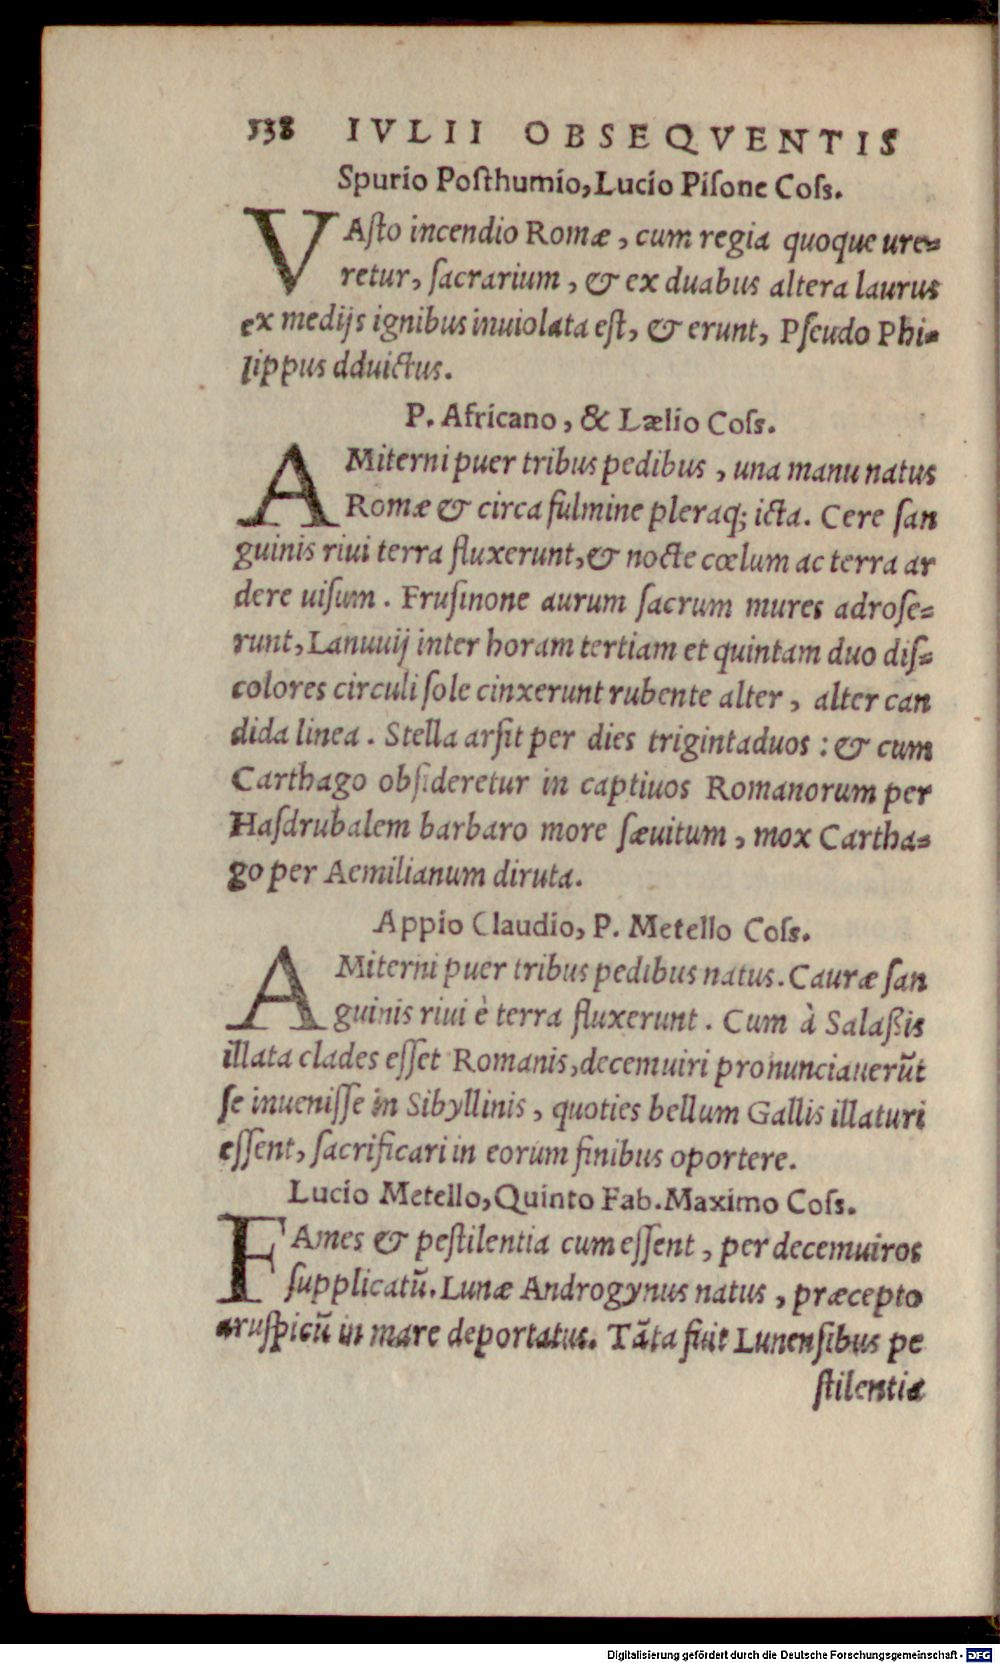 338 IVLII OBSEQVENTIS
Spurio Posthumio, Lucio Pisone Coss.
VAsto incendio Romæ, cum regia quoque ure=
retur, sacrarium, & ex duabus altera laurus
ex medijs ignibus inuiolata est, & erunt, Pseudo Phi=
lippus dduictus.
P. Africano, & Lælio Coss.
AMiterni puer tribus pedibus, una manu natus
Romæ & circa fulmine pleraq; icta. Cere san
guinis riui terra fluxerunt, & nocte cœlum ac terra ar
dere uisum. Frusinone aurum sacrum mures adrose=
runt, Lanuuij inter horam tertiam et quintam duo dis=
colores circuli sole cinxerunt rubente alter, alter can
dida linea. Stella arsit per dies trigintaduos: & cum
Carthago obsideretur in captiuos Romanorum per
Hasdrubalem barbaro more sæuitum, mox Cartha=
go per Aemilianum diruta.
Appio Claudio, P. Metello Coss.
AMiterni puer tribus pedibus natus. Cauræ san
guinis riui è terra fluxerunt. Cum à Salaßis
illata clades esset Romanis, decemuiri pronunciauerũt
se inuenisse in Sibyllinis, quoties bellum Gallis illaturi
essent, sacrificari in eorum finibus oportere.
Lucio Metello, Quinto Fab. Maximo Coss.
FAmes & pestilentia cum essent, per decemuiros
supplicatũ. Lunæ Androgynus natus, præcepto
aruspicũ in mare deportatus. Tãta fuit Lunensibus pe
stilentia
Digitalisierung gefördert durch die Deutsche Forschungsgemeinschaft - DFG